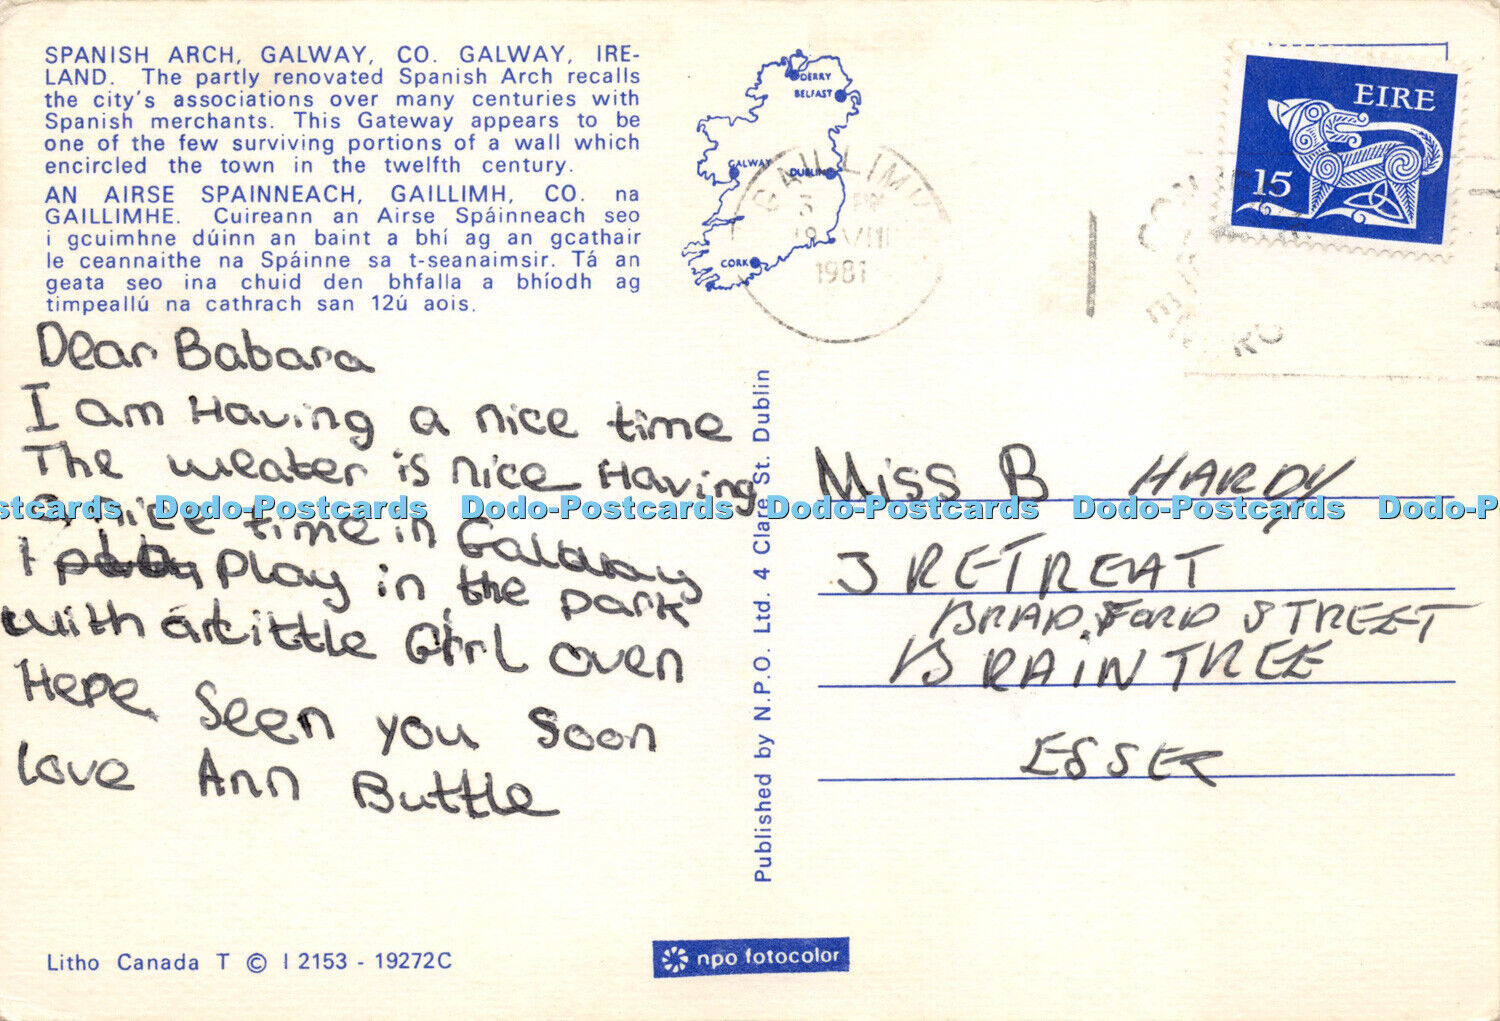 SPANISH ARCH, GALWAY, CO. GALWAY, IRE-
LAND. The partly renovated Spanish Arch recalls
the city's associations over many centuries with
Spanish merchants. This Gateway appears to be
one of the few surviving portions of a wall which
encircled the town in the twelfth century.
AN AIRSE SPAINNEACH, GAILLIMH, CO. na
GAILLIMHE. Cuireann an Airse Spáinneach seo
i gcuimhne dúinn an baint a bhí ag an gcathair
le ceannaithe na Spáinne sa t-seanaimsir. Tá an
geata seo ina chuid den bhfalla a bhíodh ag
timpeallú na cathrach san 12ú aois.
Dear Babara
I am Having a nice time
The weater is nice Having
a nice time in Galway
I play in the park
with a Little Girl oven
Here Seen you Soon
love Ann Buttle
Litho Canada T © I 2153 - 19272C
Published by N.P.O. Ltd. 4 Clare St. Dublin
npo fotocolor
DERRY
BELFAST
GALWAY
DUBLIN
CORK
GAILLIMH
1981
EIRE
15
Miss B HARDY
3 RETREAT
BRADFORD STREET
BRAINTREE
ESSEX
Dodo-Postcards Dodo-Postcards Dodo-Postcards Dodo-Postcards